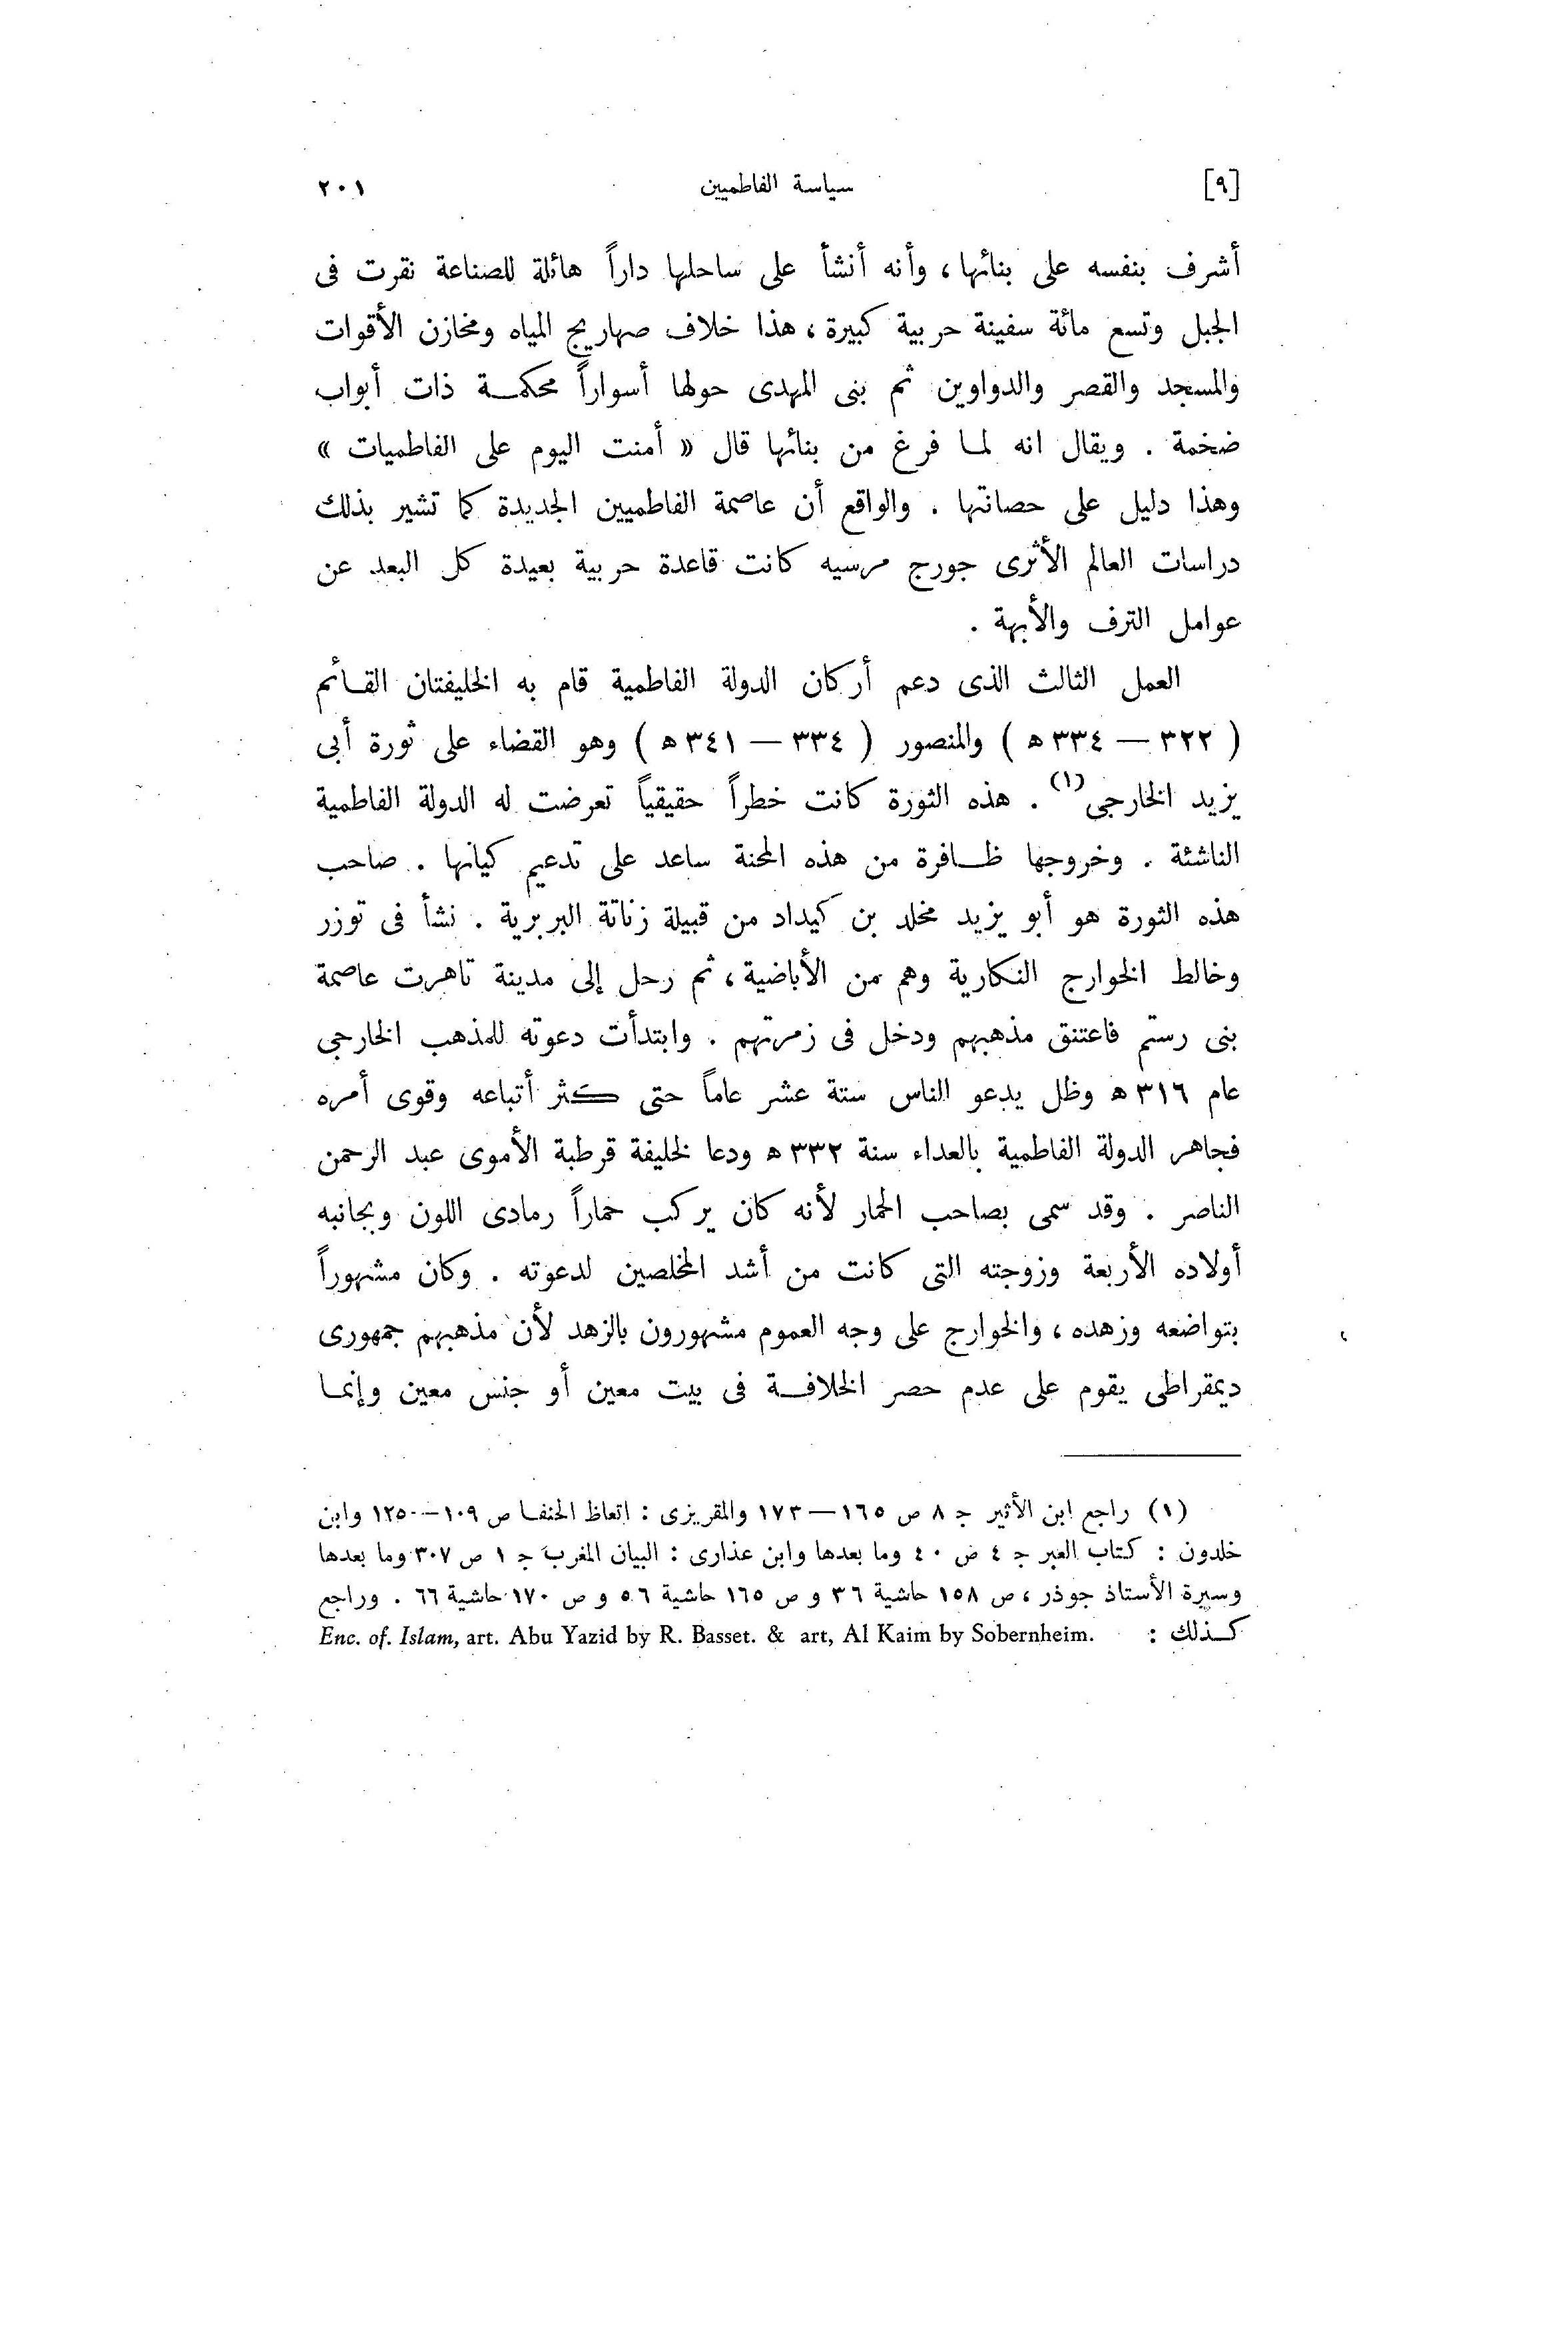 [٩] سياسة الفاطميين ٢٠١
أشرف بنفسه على بنائها، وأنه أنشأ على ساحلها داراً هائلة للصناعة نقرت فى
الجبل وتسع مائة سفينة حربية كبيرة، هذا خلاف صهاريج المياه ومخازن الأقوات
والمسجد والقصر والدواوين ثم بنى المهدى حولها أسواراً محكمــة ذات أبواب
ضخمة . ويقال انه لمـا فرغ من بنائها قال « أمنت اليوم على الفاطميات »
وهذا دليل على حصانتها . والواقع أن عاصمة الفاطميين الجديدة كما تشير بذلك
دراسات العالم الأثرى جورج مرسيه كانت قاعدة حربية بعيدة كل البعد عن
عوامل الترف والأبهة .
العمل الثالث الذى دعم أركان الدولة الفاطمية قام به الخليفتان القـائم
( ٣٢٢ — ٣٣٤ ه ) والمنصور ( ٣٣٤ — ٣٤١ ه ) وهو القضاء على ثورة أبى
يزيد الخارجى(١) . هذه الثورة كانت خطراً حقيقياً تعرضت له الدولة الفاطمية
الناشئة . وخروجها ظـافرة من هذه المحنة ساعد على تدعيم كيانها . صاحب
هذه الثورة هو أبو يزيد مخلد بن كيداد من قبيلة زناتة البربرية . نشأ فى توزر
وخالط الخوارج النكارية وهم من الأباضية، ثم رحل إلى مدينة تاهرت عاصمة
بنى رستم فاعتنق مذهبهم ودخل فى زمرتهم . وابتدأت دعوته للمذهب الخارجى
عام ٣١٦ ه وظل يدعو الناس ستة عشر عاماً حتى كثر أتباعه وقوى أمره
فجاهر الدولة الفاطمية بالعداء سنة ٣٣٢ ه ودعا لخليفة قرطبة الأموى عبد الرحمن
الناصر . وقد سمى بصاحب الحمار لأنه كان يركب حماراً رمادى اللون وبجانبه
أولاده الأربعة وزوجته التى كانت من أشد المخلصين لدعوته . وكان مشهوراً
بتواضعه وزهده، والخوارج على وجه العموم مشهورون بالزهد لأن مذهبهم جمهورى
ديمقراطى يقوم على عدم حصر الخلافــة فى بيت معين أو جنس معين وإنمـا
(١) راجع ابن الأثير ج ٨ ص ١٦٥—١٧٣ والمقريزى : اتعاظ الحنفـا ص ١٠٩—١٢٥ وابن
خلدون : كتاب العبر ج ٤ ص ٤٠ وما بعدها وابن عذارى : البيان المغرب ج ١ ص ٣٠٧ وما بعدها
وسيرة الأستاذ جوذر، ص ١٥٨ حاشية ٣٦ و ص ١٦٥ حاشية ٥٦ و ص ١٧٠ حاشية ٦٦ . وراجع
كـذلك : Enc. of. Islam, art. Abu Yazid by R. Basset. & art, Al Kaim by Sobernheim.